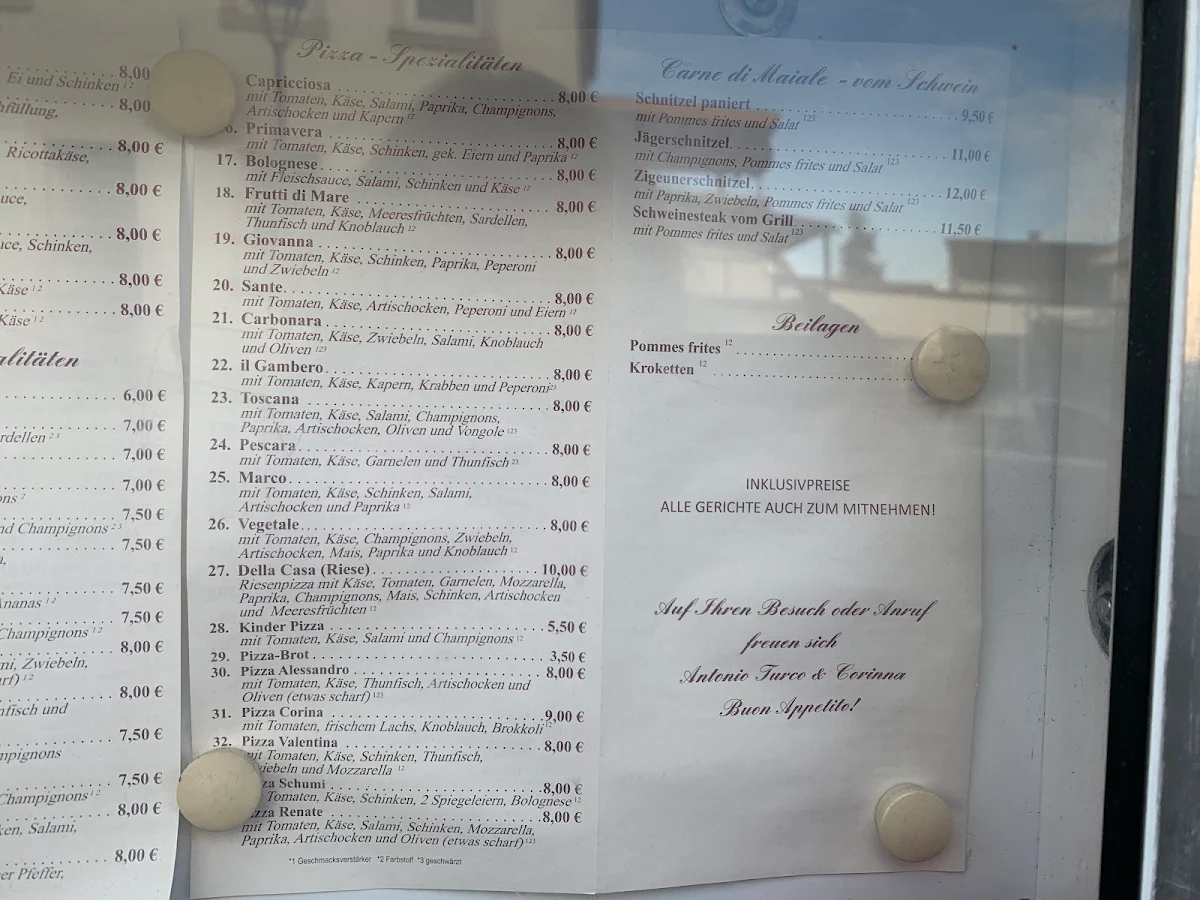 8,00
Ei und Schinken 1 2
8,00
hfüllung,
8,00 €
Ricottakäse,
8,00 €
uce,
8,00 €
uce, Schinken,
8,00 €
Käse 1 2
8,00 €
Käse 1 2
alitäten
6,00 €
7,00 €
rdellen 2 3
7,00 €
7,00 €
ons 2
7,50 €
nd Champignons 2 3
7,50 €
7,50 €
Ananas 1 2
7,50 €
Champignons 1 2
8,00 €
mi, Zwiebeln,
rf) 1 2
8,00 €
nfisch und
7,50 €
mpignons
7,50 €
Champignons 1 2
8,00 €
ken, Salami,
8,00 €
er Pfeffer,
Pizza - Spezialitäten
Capricciosa 8,00 €
mit Tomaten, Käse, Salami, Paprika, Champignons,
Artischocken und Kapern 12
6. Primavera 8,00 €
mit Tomaten, Käse, Schinken, gek. Eiern und Paprika 12
17. Bolognese 8,00 €
mit Fleischsauce, Salami, Schinken und Käse 12
18. Frutti di Mare 8,00 €
mit Tomaten, Käse, Meeresfrüchten, Sardellen,
Thunfisch und Knoblauch 12
19. Giovanna 8,00 €
mit Tomaten, Käse, Schinken, Paprika, Peperoni
und Zwiebeln 12
20. Sante 8,00 €
mit Tomaten, Käse, Artischocken, Peperoni und Eiern 12
21. Carbonara 8,00 €
mit Tomaten, Käse, Zwiebeln, Salami, Knoblauch
und Oliven 123
22. il Gambero 8,00 €
mit Tomaten, Käse, Kapern, Krabben und Peperoni 23
23. Toscana 8,00 €
mit Tomaten, Käse, Salami, Champignons,
Paprika, Artischocken, Oliven und Vongole 123
24. Pescara 8,00 €
mit Tomaten, Käse, Garnelen und Thunfisch 23
25. Marco 8,00 €
mit Tomaten, Käse, Schinken, Salami,
Artischocken und Paprika 12
26. Vegetale 8,00 €
mit Tomaten, Käse, Champignons, Zwiebeln,
Artischocken, Mais, Paprika und Knoblauch 12
27. Della Casa (Riese) 10,00 €
Riesenpizza mit Käse, Tomaten, Garnelen, Mozzarella,
Paprika, Champignons, Mais, Schinken, Artischocken
und Meeresfrüchten 12
28. Kinder Pizza 5,50 €
mit Tomaten, Käse, Salami und Champignons 12
29. Pizza-Brot 3,50 €
30. Pizza Alessandro 8,00 €
mit Tomaten, Käse, Thunfisch, Artischocken und
Oliven (etwas scharf) 123
31. Pizza Corina 9,00 €
mit Tomaten, frischem Lachs, Knoblauch, Brokkoli 12
32. Pizza Valentina 8,00 €
mit Tomaten, Käse, Schinken, Thunfisch,
wiebeln und Mozzarella 12
zza Schumi 8,00 €
Tomaten, Käse, Schinken, 2 Spiegeleiern, Bolognese 12
zza Renate 8,00 €
mit Tomaten, Käse, Salami, Schinken, Mozzarella,
Paprika, Artischocken und Oliven (etwas scharf) 123
*1 Geschmacksverstärker *2 Farbstoff *3 geschwärzt
Carne di Maiale - vom Schwein
Schnitzel paniert 9,50 €
mit Pommes frites und Salat 123
Jägerschnitzel 11,00 €
mit Champignons, Pommes frites und Salat 123
Zigeunerschnitzel 12,00 €
mit Paprika, Zwiebeln, Pommes frites und Salat 123
Schweinesteak vom Grill 11,50 €
mit Pommes frites und Salat 123
Beilagen
Pommes frites 12
Kroketten 12
INKLUSIVPREISE
ALLE GERICHTE AUCH ZUM MITNEHMEN!
Auf Ihren Besuch oder Anruf
freuen sich
Antonio Turco & Corinna
Buon Appetito!